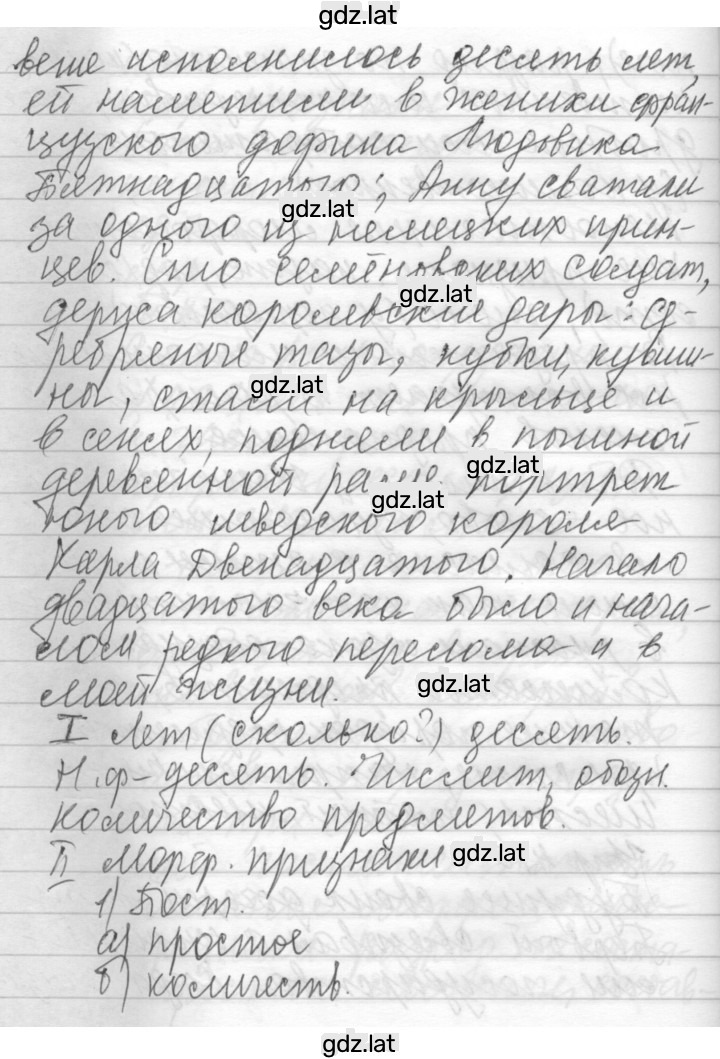 gdz.lat
веше исполнилось десять лет,
ей наметили в женихи фран-
цузского дофина Людовика
Пятнадцатого; Анну сватали
gdz.lat
за одного из немецких прин-
цев. Сто семёновских солдат,
gdz.lat
держа королевские дары: се-
ребряные тазы, кубки, кувши-
gdz.lat
ны, стали на крыльце и
в сенях, подняли в пышной
gdz.lat
деревянной раме портрет
gdz.lat
юного шведского короля
Карла Двенадцатого. Начало
двадцатого века было и нача-
лом редкого перелома и в
моей жизни.
gdz.lat
I Лет (сколько?) десять.
Н.ф – десять. Числит. обозн.
количество предметов.
II Морф. признаки
gdz.lat
1) Пост.
а) простое
б) количеств.
gdz.lat